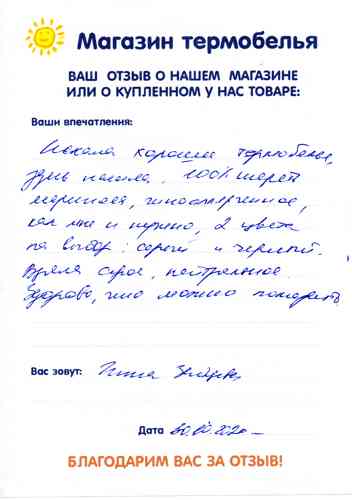 Магазин термобелья
ВАШ ОТЗЫВ О НАШЕМ МАГАЗИНЕ
ИЛИ О КУПЛЕННОМ У НАС ТОВАРЕ:
Ваши впечатления:
Искала хорошее термобелье,
здесь нашла. 100% шерсть
мериноса, гипоаллергенное,
как мне и нужно, 2 цвета
на выбор: серый и черный.
Взяла серое, нейтральное.
Здорово, что можно померить.
Вас зовут:
Дата
БЛАГОДАРИМ ВАС ЗА ОТЗЫВ!